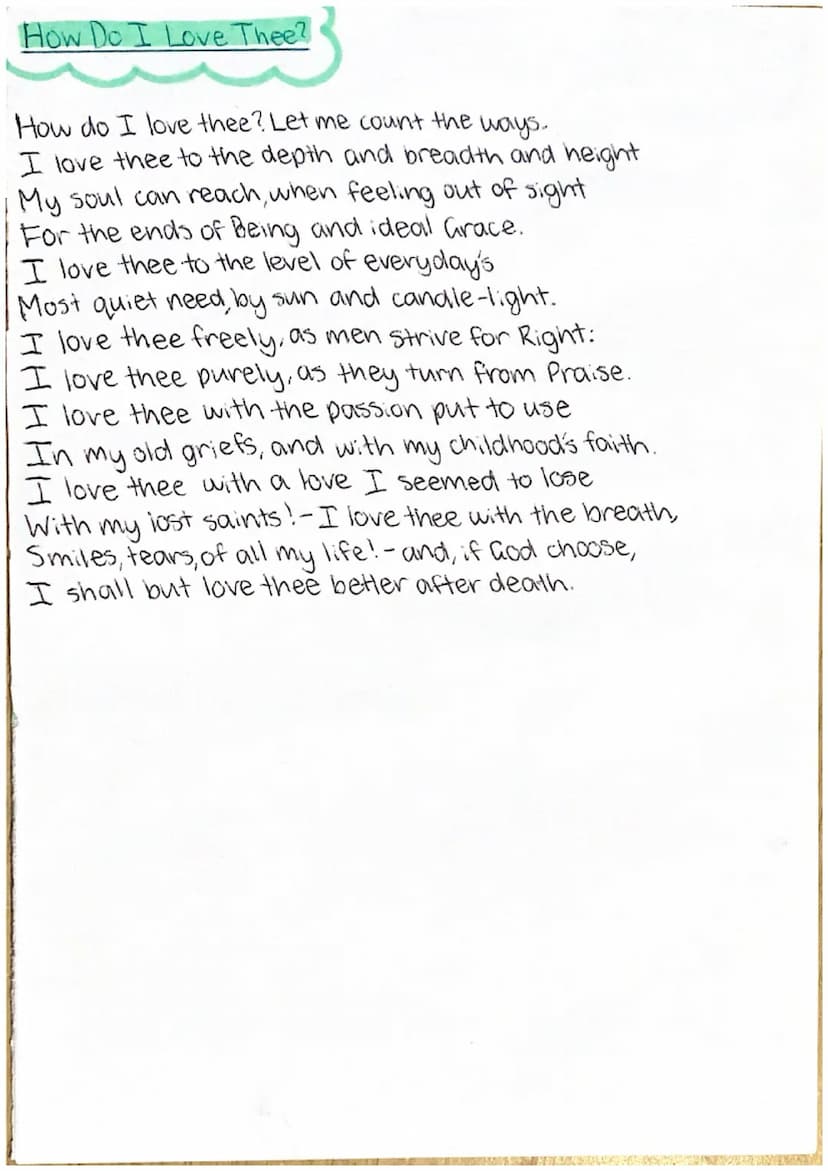 How Do I Love Thee?
How do I love thee? Let me count the ways.
I love thee to the depth and breadth and height
My soul can reach, when feeling out of sight
For the ends of Being and ideal Grace.
I love thee to the level of everyday's
Most quiet need, by sun and candle-light.
I love thee freely, as men strive for Right:
I love thee purely, as they turn from Praise.
I love thee with the passion put to use
In my old griefs, and with my childhood's faith.
I love thee with a love I seemed to lose
With my lost saints! - I love thee with the breath,
Smiles, tears, of all my life! - and, if God choose,
I shall but love thee better after death.